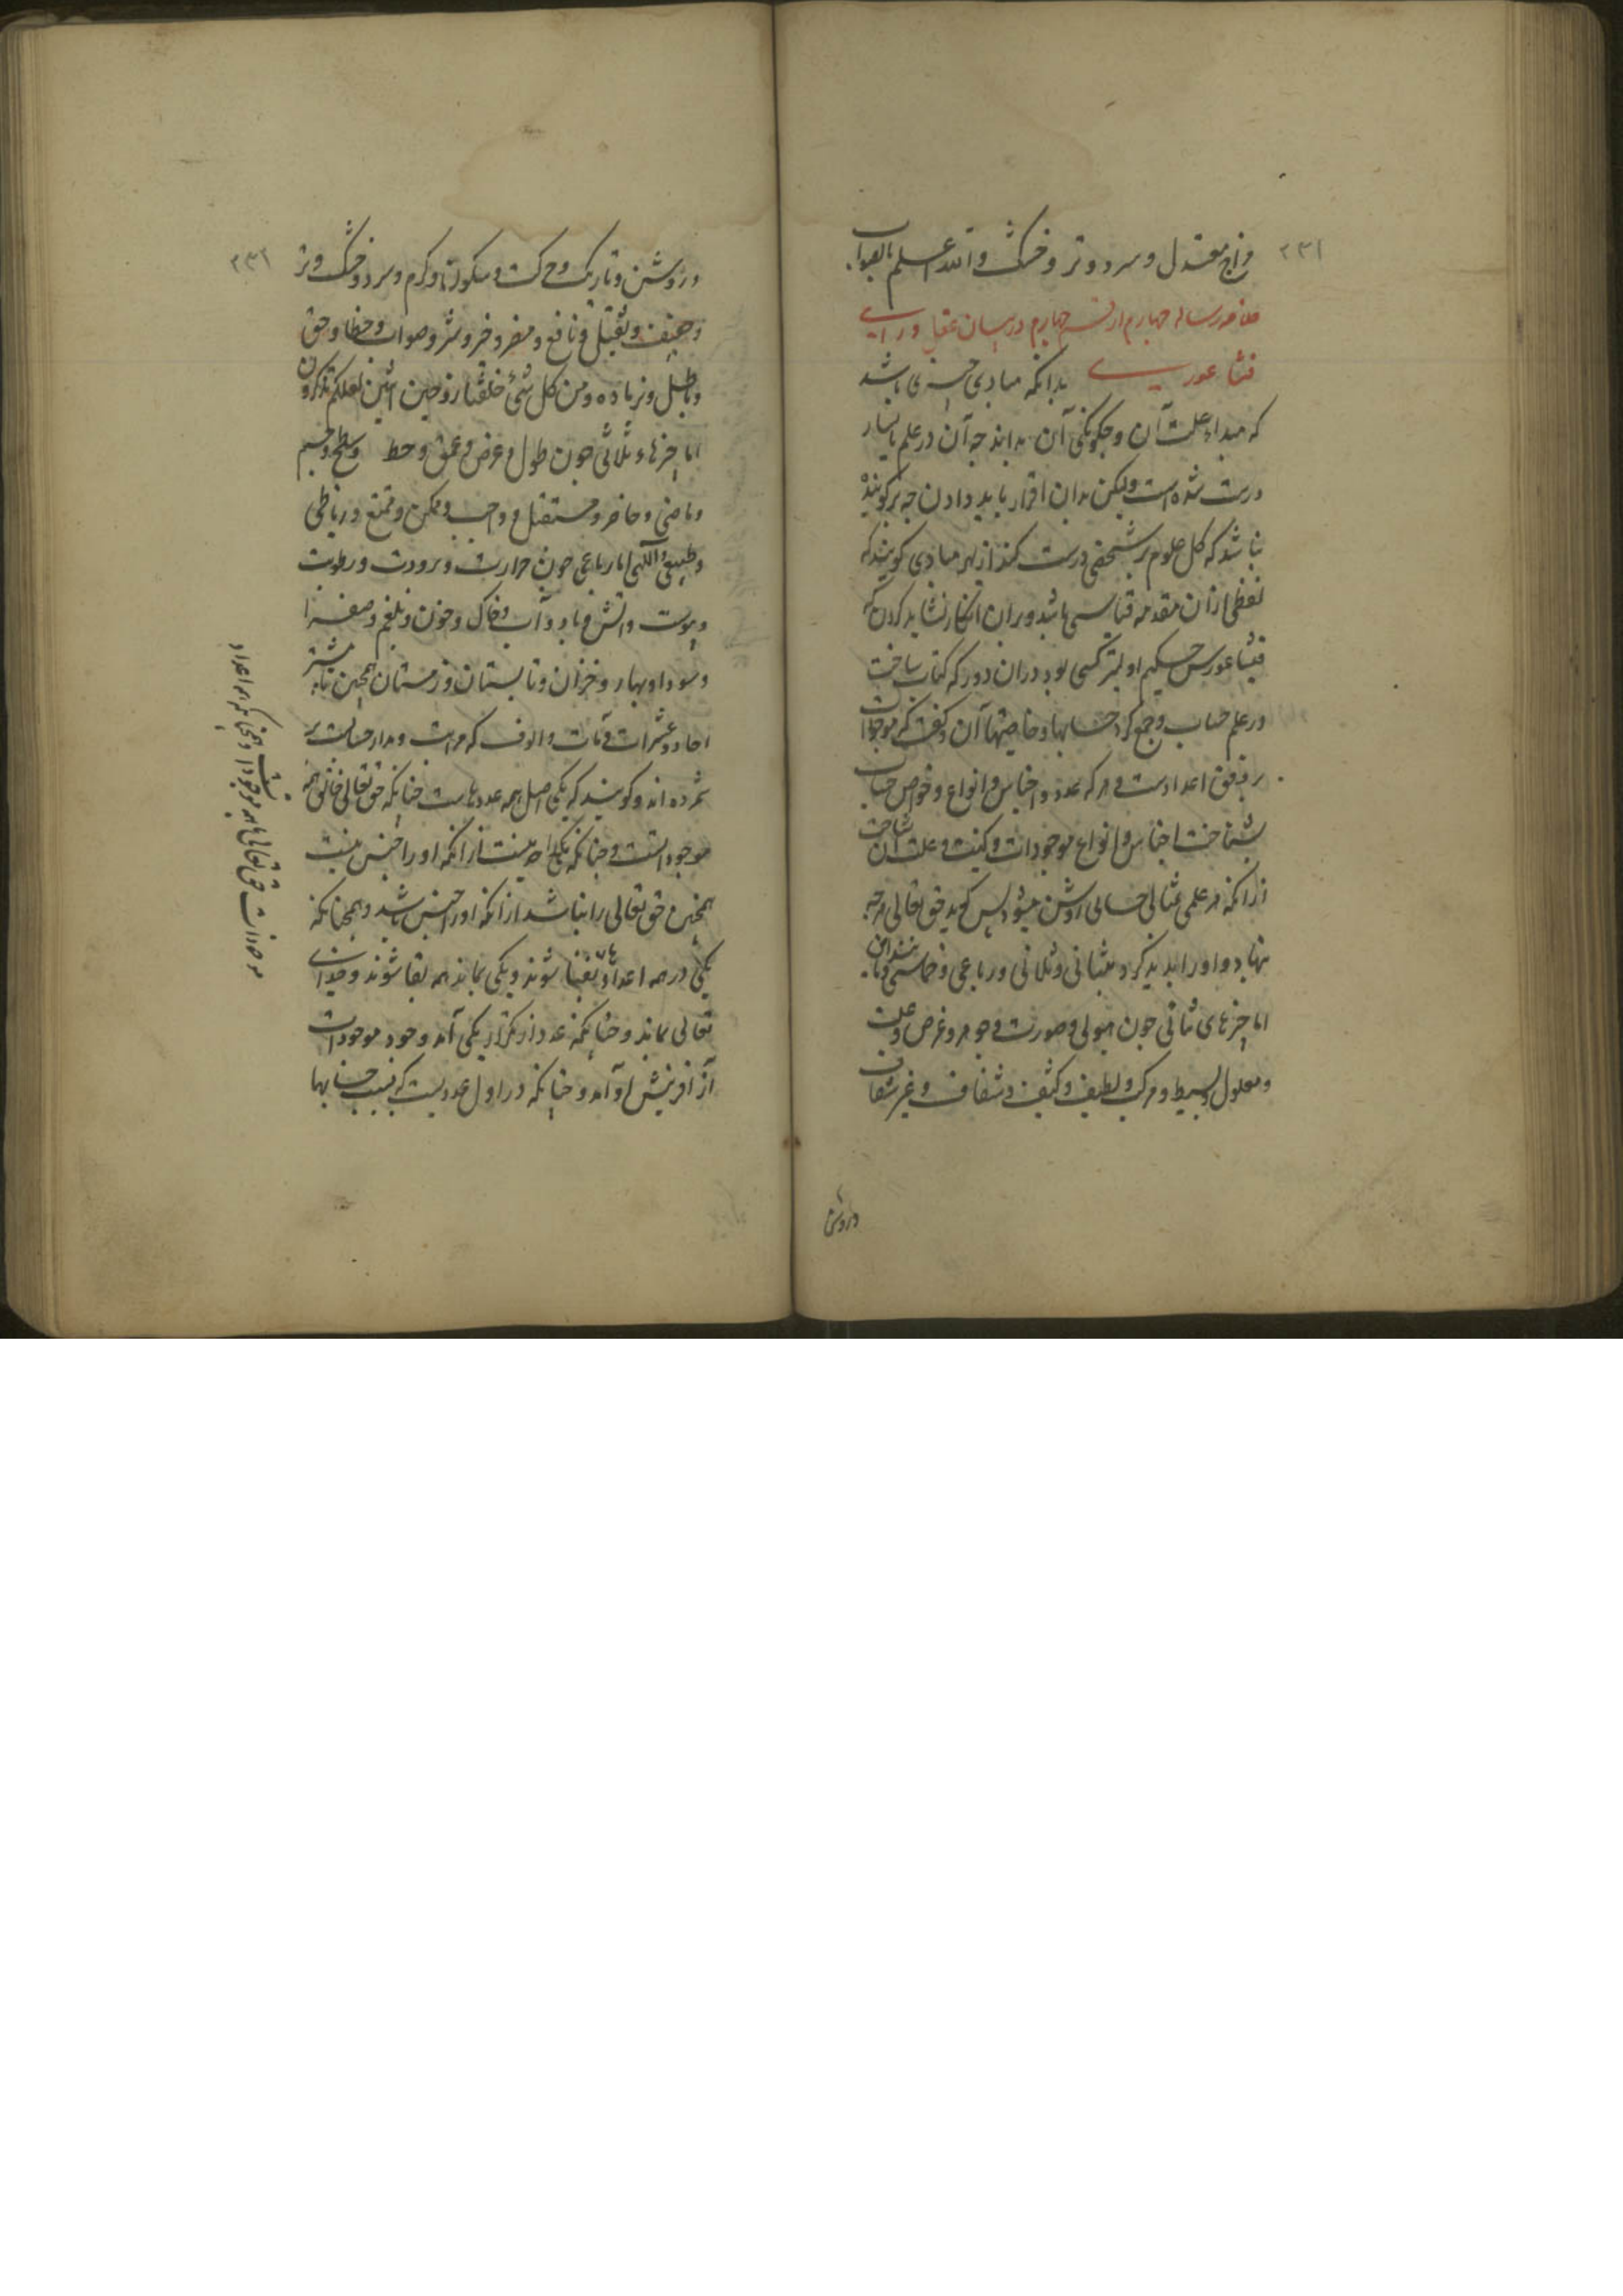 ۲۳۱
مزاج معتدل و سرد و تر و خشک والله اعلم بالصواب
خلاصه رساله چهارم از قسم چهارم در بیان عقل و رای
فیثاغورس بدانکه مبادی چیزی باشد
که مبداء علت آن و چگونگی آن بدانند چه آن در علم
درست شده است ولیکن بدان اقرار باید دادن چه
نباشد که کل علوم بر شخصی درست کند از بهر مبادی گویند که
لفظی از آن مقدمه قیاسی باشد و بران انکار نشاید کردن که
فیثاغورس حکیم اولتر کسی بود در آن دور که کتاب ساخت
در علم حساب و جمع کرد حسابها و خاصیتهاء آن و گفت که موجودات
بر وفق اعدادست و هر که عدد و اجناس و انواع و خواص حساب
شناخت اجناس و انواع موجودات و کیفیت و علت آن شناخت
از آنکه هر علمی مثالی حسابی روشن میشود پس گوید حق تعالی هر چه
نهاد و او را پدید کرد مثنائی و ثلاثی و رباعی و خماسی و مانند این
اما چیزهای ثنائی چون هیولی و صورت و جوهر و عرض و علت
و معلول و بسیط و مرکب و لطیف و کثیف و شفاف و غیر شفاف
و روشن
۲۳۲
و روشن و تاریک و حرکت و سکون و گرم و سرد و خشک و تر
و خفیف و ثقیل و نافع و مضر و خیر و شر و صواب و خطا و حق
و باطل و نر و ماده و من کل شیء خلقنا زوجین اثنین لعلکم تذکرون
اما چیزهاء ثلاثی چون طول و عرض و عمق و خط و سطح و جسم
و ماضی و حاضر و مستقبل و واجب و ممکن و ممتنع و ریاضی
و طبیعی و الهی اما رباعی چون حرارت و برودت و رطوبت
و یبوست و آتش و باد و آب و خاک و خون و بلغم و صفرا
و سودا و بهار و خزان و تابستان و زمستان همچنین تا بیشتر
احاد و عشرات و مآت و الوف که مراتب و مدار حسابست بر
شمرده‌اند و گویند که یکی اصل همه عددهاست چنانکه حق تعالی خالق همه
موجوداتست و چنانکه یکی را جزء نیست از آنکه او را جنس نیست
همچنین حق تعالی را نباشد از آنکه او را جنس نباشد و همچنانکه
یکی در همه اعداد
تعالی بماند و چنانکه عدد از تکرار یکی آمد وجود موجودات
از آفرینش او آمد و چنانکه دو اول عددیست که بسبب حسابها